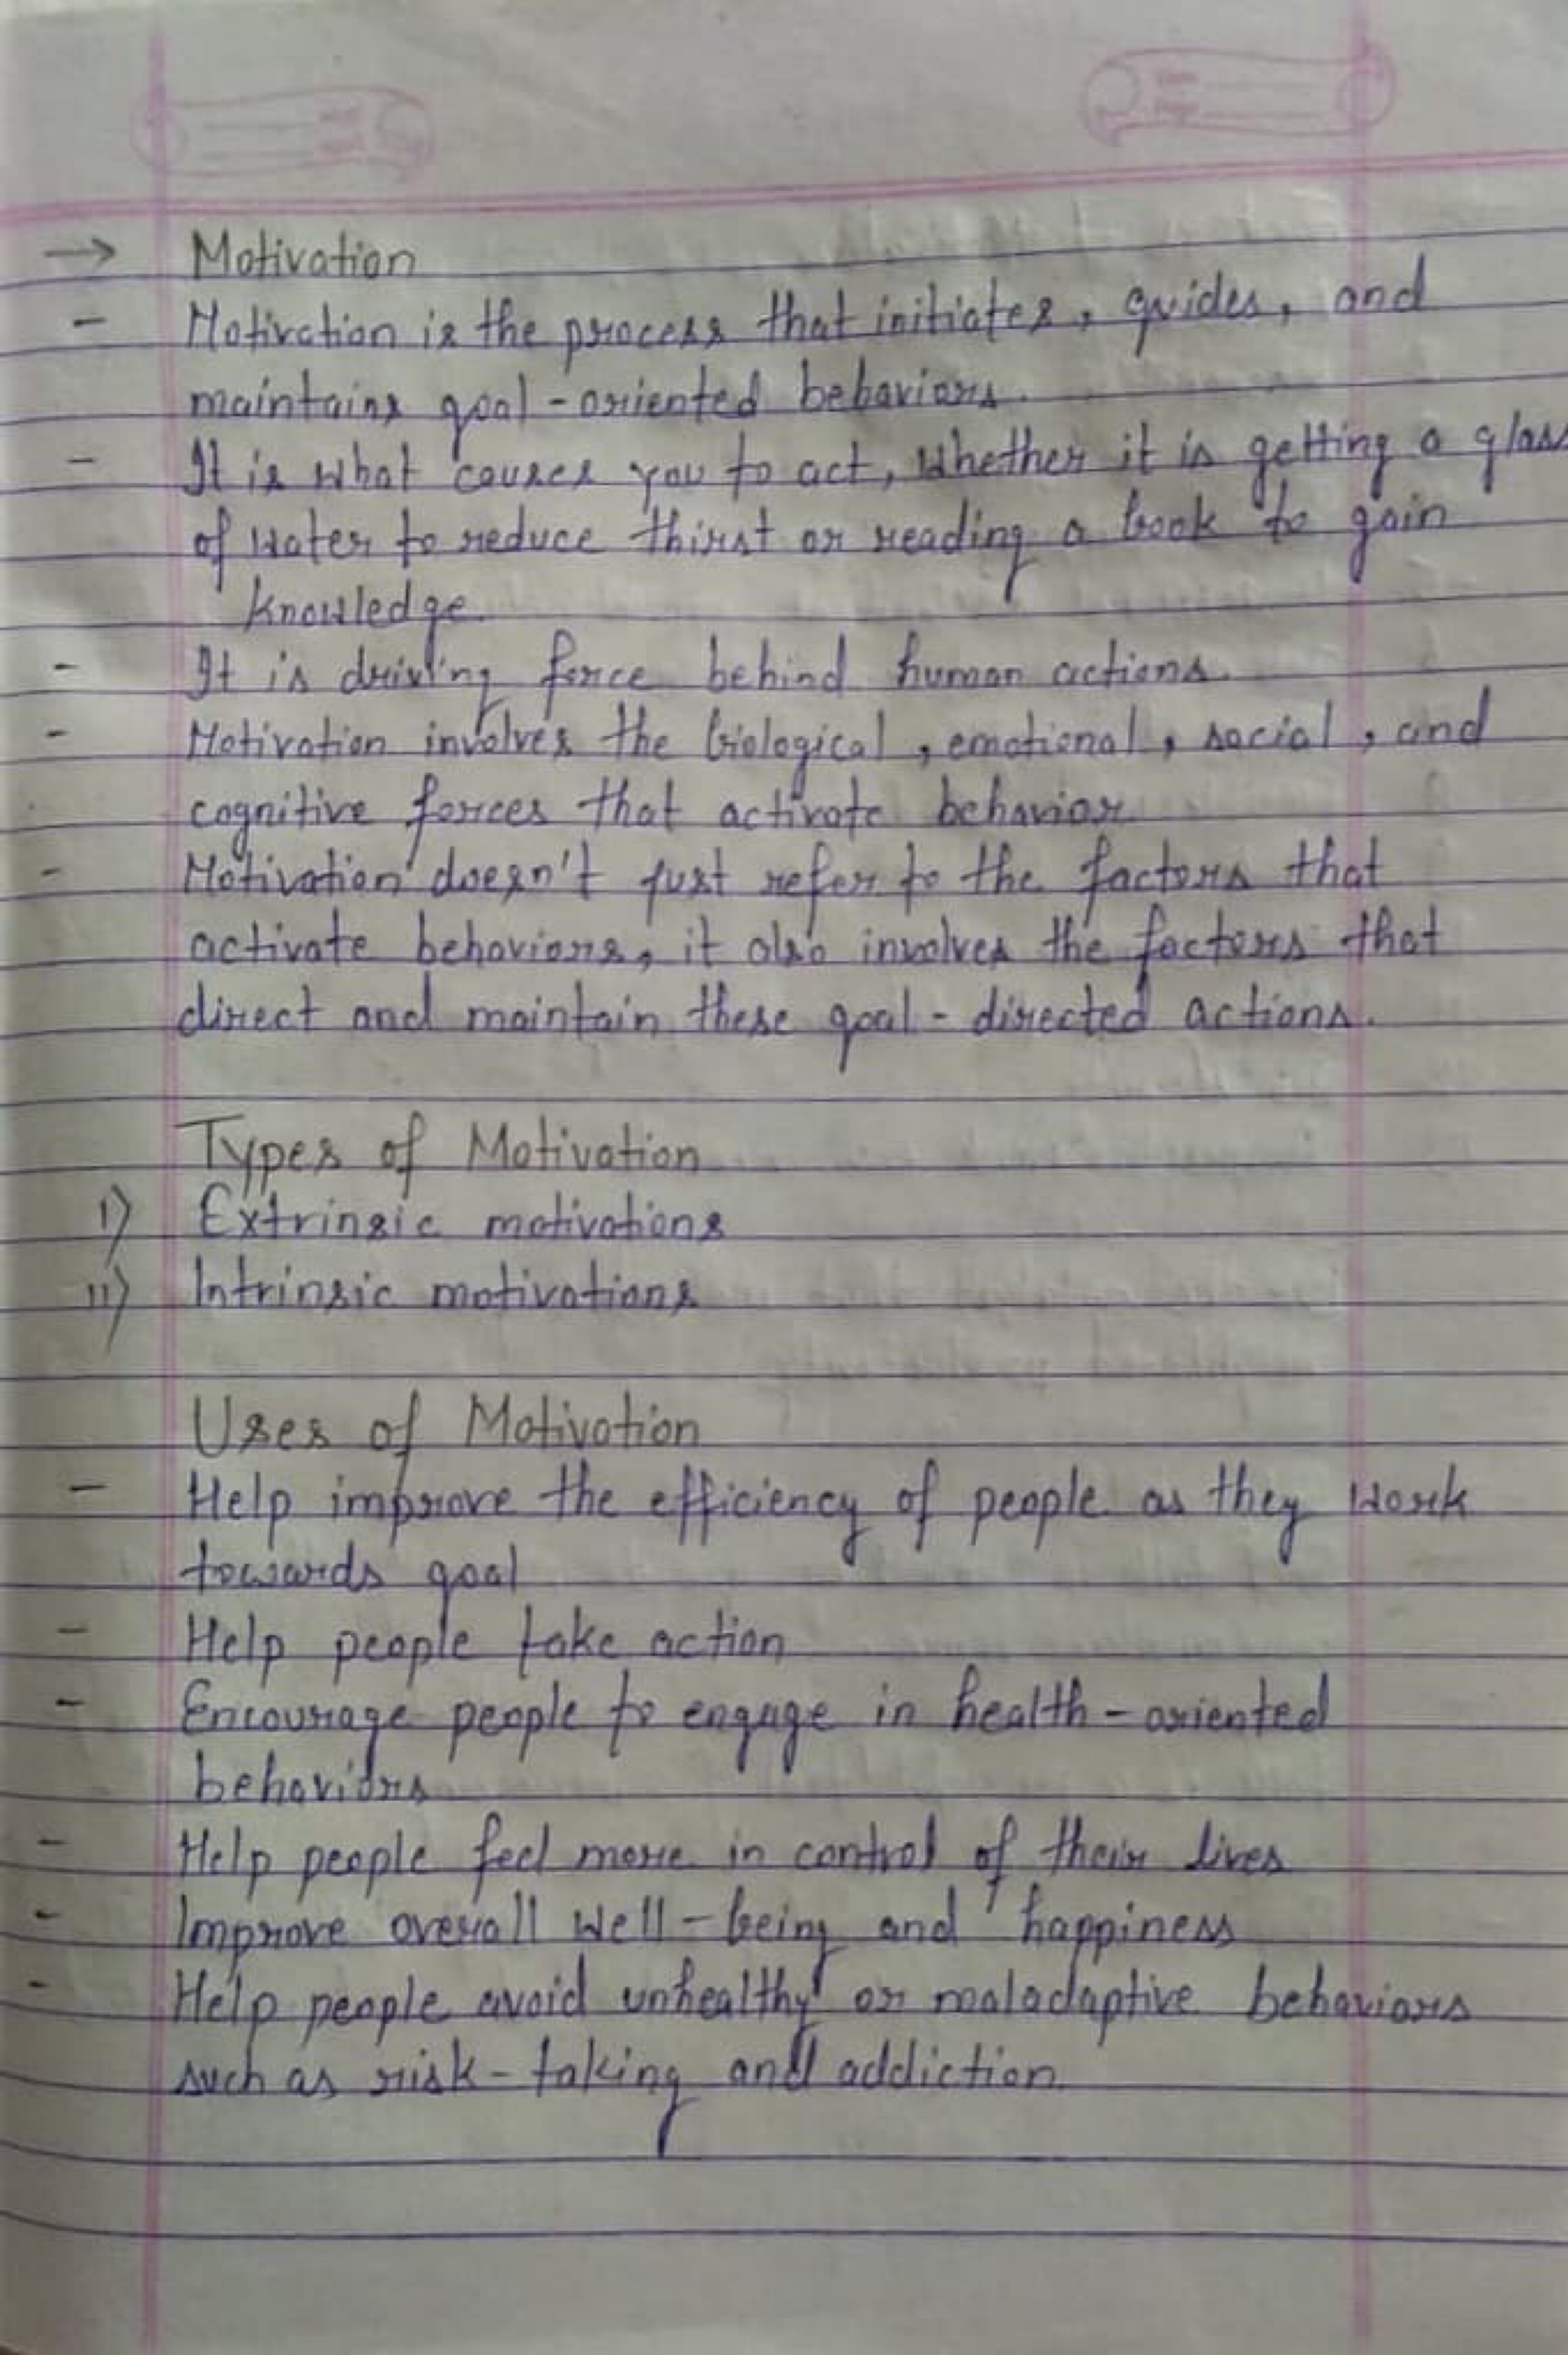 → Motivation
- Motivation is the process that initiates, guides, and
maintains goal-oriented behaviors.
- It is what causes you to act, whether it is getting a glass
of water to reduce thirst or reading a book to gain
knowledge.
- It is driving force behind human actions.
- Motivation involves the biological, emotional, social, and
cognitive forces that activate behavior.
- Motivation doesn't just refer to the factors that
activate behaviors, it also involves the factors that
direct and maintain these goal-directed actions.
Types of Motivation
I) Extrinsic motivations
II) Intrinsic motivations
Uses of Motivation
- Help improve the efficiency of people as they work
towards goal
- Help people take action
- Encourage people to engage in health-oriented
behaviors
- Help people feel more in control of their lives
- Improve overall well-being and happiness
- Help people avoid unhealthy or maladaptive behaviors
such as risk-taking and addiction.